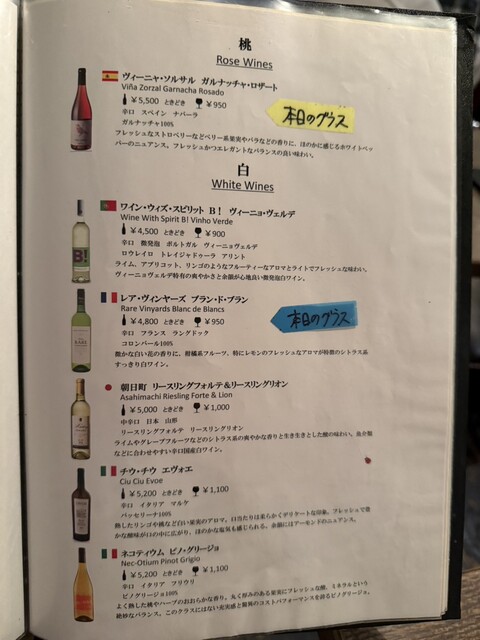 桃
Rose Wines
ヴィーニャ・ソルサル ガルナッチャ・ロザート
Viña Zorzal Garnacha Rosado
¥5,500 ときどき ¥950
本日のグラス
辛口 スペイン ナバーラ
ガルナッチャ100%
フレッシュなストロベリーなどベリー系果実やバラなどの香りに、ほのかに感じるホワイトペッ
パーのニュアンス。フレッシュかつエレガントなバランスの良い味わい。
白
White Wines
ワイン・ウィズ・スピリット B! ヴィーニョ・ヴェルデ
Wine With Spirit B! Vinho Verde
¥4,500 ときどき ¥900
辛口 微発泡 ポルトガル ヴィーニョヴェルデ
ロウレイロ トレイジャドゥーラ アリント
ライム、アプリコット、リンゴのようなフルーティーなアロマとライトでフレッシュな味わい。
ヴィーニョヴェルデ特有の爽やかさと余韻が心地良い微発泡白ワイン。
レア・ヴィンヤーズ ブラン・ド・ブラン
Rare Vinyards Blanc de Blancs
¥4,800 ときどき ¥950
本日のグラス
辛口 フランス ラングドック
コロンバール100%
微かな白い花の香りに、柑橘系フルーツ、特にレモンのフレッシュなアロマが特徴的シトラス系
すっきり白ワイン。
朝日町 リースリングフォルテ&リースリングリオン
Asahimachi Riesling Forte & Lion
¥5,000 ときどき ¥1,000
中辛口 日本 山形
リースリングフォルテ リースリングリオン
ライムやグレープフルーツなどのシトラス系の爽やかな香りと生き生きとした酸の味わい。魚介類
などに合わせやすい辛口国産白ワイン。
チウ・チウ エヴォエ
Ciu Ciu Evoe
¥5,200 ときどき ¥1,100
辛口 イタリア マルケ
パッセリーナ100%
熟したリンゴや桃など白い果実のアロマ。口当たりは柔らかくデリケートな印象。フレッシュで豊
かな酸味が口の中に広がり、ほのかな塩気も感じられる。余韻にはアーモンドのニュアンス。
ネコティウム ピノ・グリージョ
Nec-Otium Pinot Grigio
¥5,200 ときどき ¥1,100
辛口 イタリア フリウリ
ピノグリージョ100%
よく熟した桃やハーブのおおらかな香り。丸く厚みのある果実にフレッシュな酸、ミネラルという
絶妙なバランス。このクラスにはない充実感と驚異のコストパフォーマンスを誇るピノグリージョ。